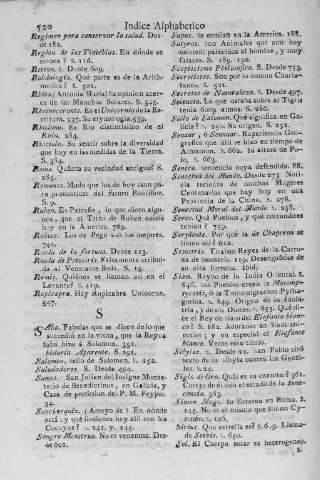 520 Indice Alphabetico
Regimen para conservar la salud. Des-
de 182.
Region de las Tinieblas. En dónde se
coloca? 2. 116.
Retos. S. Desde 609.
Rabdología. Qué parte es de la Arith-
metica? 2. 501.
Rheita (Antonio Maria) Su opinion acer-
ca de las Manchas Solares. S. 345.
537. Su etymología. 539.
Rhodano. En Rio distintísimo de el
Rhin. 284.
Ricciolo. Su sentir sobre la diversidad
que hay en las medidas de la Tierra.
S. 384.
Roma. Quánta su vecindad antigua? S.
285.
Romanos. Modo que los de hoy usan pa-
ra pronosticar del futuro Pontifice.
S. 9.
Ruben. Es Patraña, lo que dicen algu-
nos, que el Tribu de Ruben exista
hoy en la America. 769.
Rubies. Los de Pegu son los mejores.
742.
Rueda de la Fortuna. Desde 123.
Rueda de Petosiris. Falsamente atribui-
da al Venerable Beda. S. 15.
Rumis. Quiénes se llaman así en el
Levante? S. 419.
Rupicapra. Hay Rupicabra Unicorne.
627.
S
Saba. Fabulas que se dicen de lo que
sucedió en la visita, que la Reyna
Saba hizo á Salomon. 251.
Sabiduria Aparente. S. 291.
Salomon. sello de Salomon. S. 252.
Saludadores. S. Desde 494.
Samos. San Julian de, insigne Monas-
terio de Benedictinos, en Galicia, y
Casa de profesion del P. M. Feyjoo.
34.
(Arroyo de) En dónde
está: y qué ilusiones hay allí con los
Cocuyos? 2. 241. y. 245.
Sangre Menstrua. No es venenosa. Des-
de 601.
Sapos. Se comian en la America. 188.
Satyros. son Animales que son hoy
existentes parecidos al hombre, y muy
falaces. S. 189. 190.
Scepticismo Philosofico. S. Desde 753.
Secretistas. Son por lo comun Charla-
tanes. S. 501.
Secretos de Naturaleza. S. Desde 497.
Seleucia. La que estaba sobre el Tigris
tenia 600g almas. S. 286.
Sello de Salomon. Qué significa en Ga-
licia? 2. 252. Su origen. S. 252.
Experiencia Geo-
grafica que allí se hizo en tiempo de
Almamon. 2. 662. su altura de Po-
lo. S. 663.
Seneca. sentencia suya defendida. 88.
Senectud del Mundo. Desde 273. Noti-
cia reciente de muchas Mugeres
Centenarias que hay hoy en una
Provincia de la China. 2. 278.
Senectud Moral del Mundo S. 258.
Seres. Qué Pueblos, y qué costumbres
tenian? 759.
Serpiente. Por qué la de Chaperon se
llama así? 602.
Sesostris. Tiraban Reyes de la Carro-
za de Sesostris. 119. Desengañóse de
su alta fortuna. ibid.
Siam. Reyno de la India Oriental. 2.
848. sus Pueblos creen la Metemp-
sycosis, ó la Transmigracion Pytha-
gorica. 2. 849. Origen de su Idola-
tría, y de sus Dioses. 2. 885. Qué di-
ce el Rey de Siam del Elefante blan-
co? S. 882. Adoranse en Siam ani-
males; y en especial el Elefante
blanco. Vease este titulo.
Sibylas. S. Desde 21. San Pablo citó
texto de la Sibyla contra los Genti-
les. S. 22.
Siglo de Oro. Quál es su caracter? 362.
Cotejo de él con el estado de la Ino-
cencia. 363.
Simon Mago. Su Estatua en Roma. 2.
145. No es el mismo que Simon Cy-
reneo. 2. 146.
Sirius. Qué estrella es? 2. 619. Llama-
da Sothis. 2. 650.
Sol. El Cuerpo solar es heterogeneo.